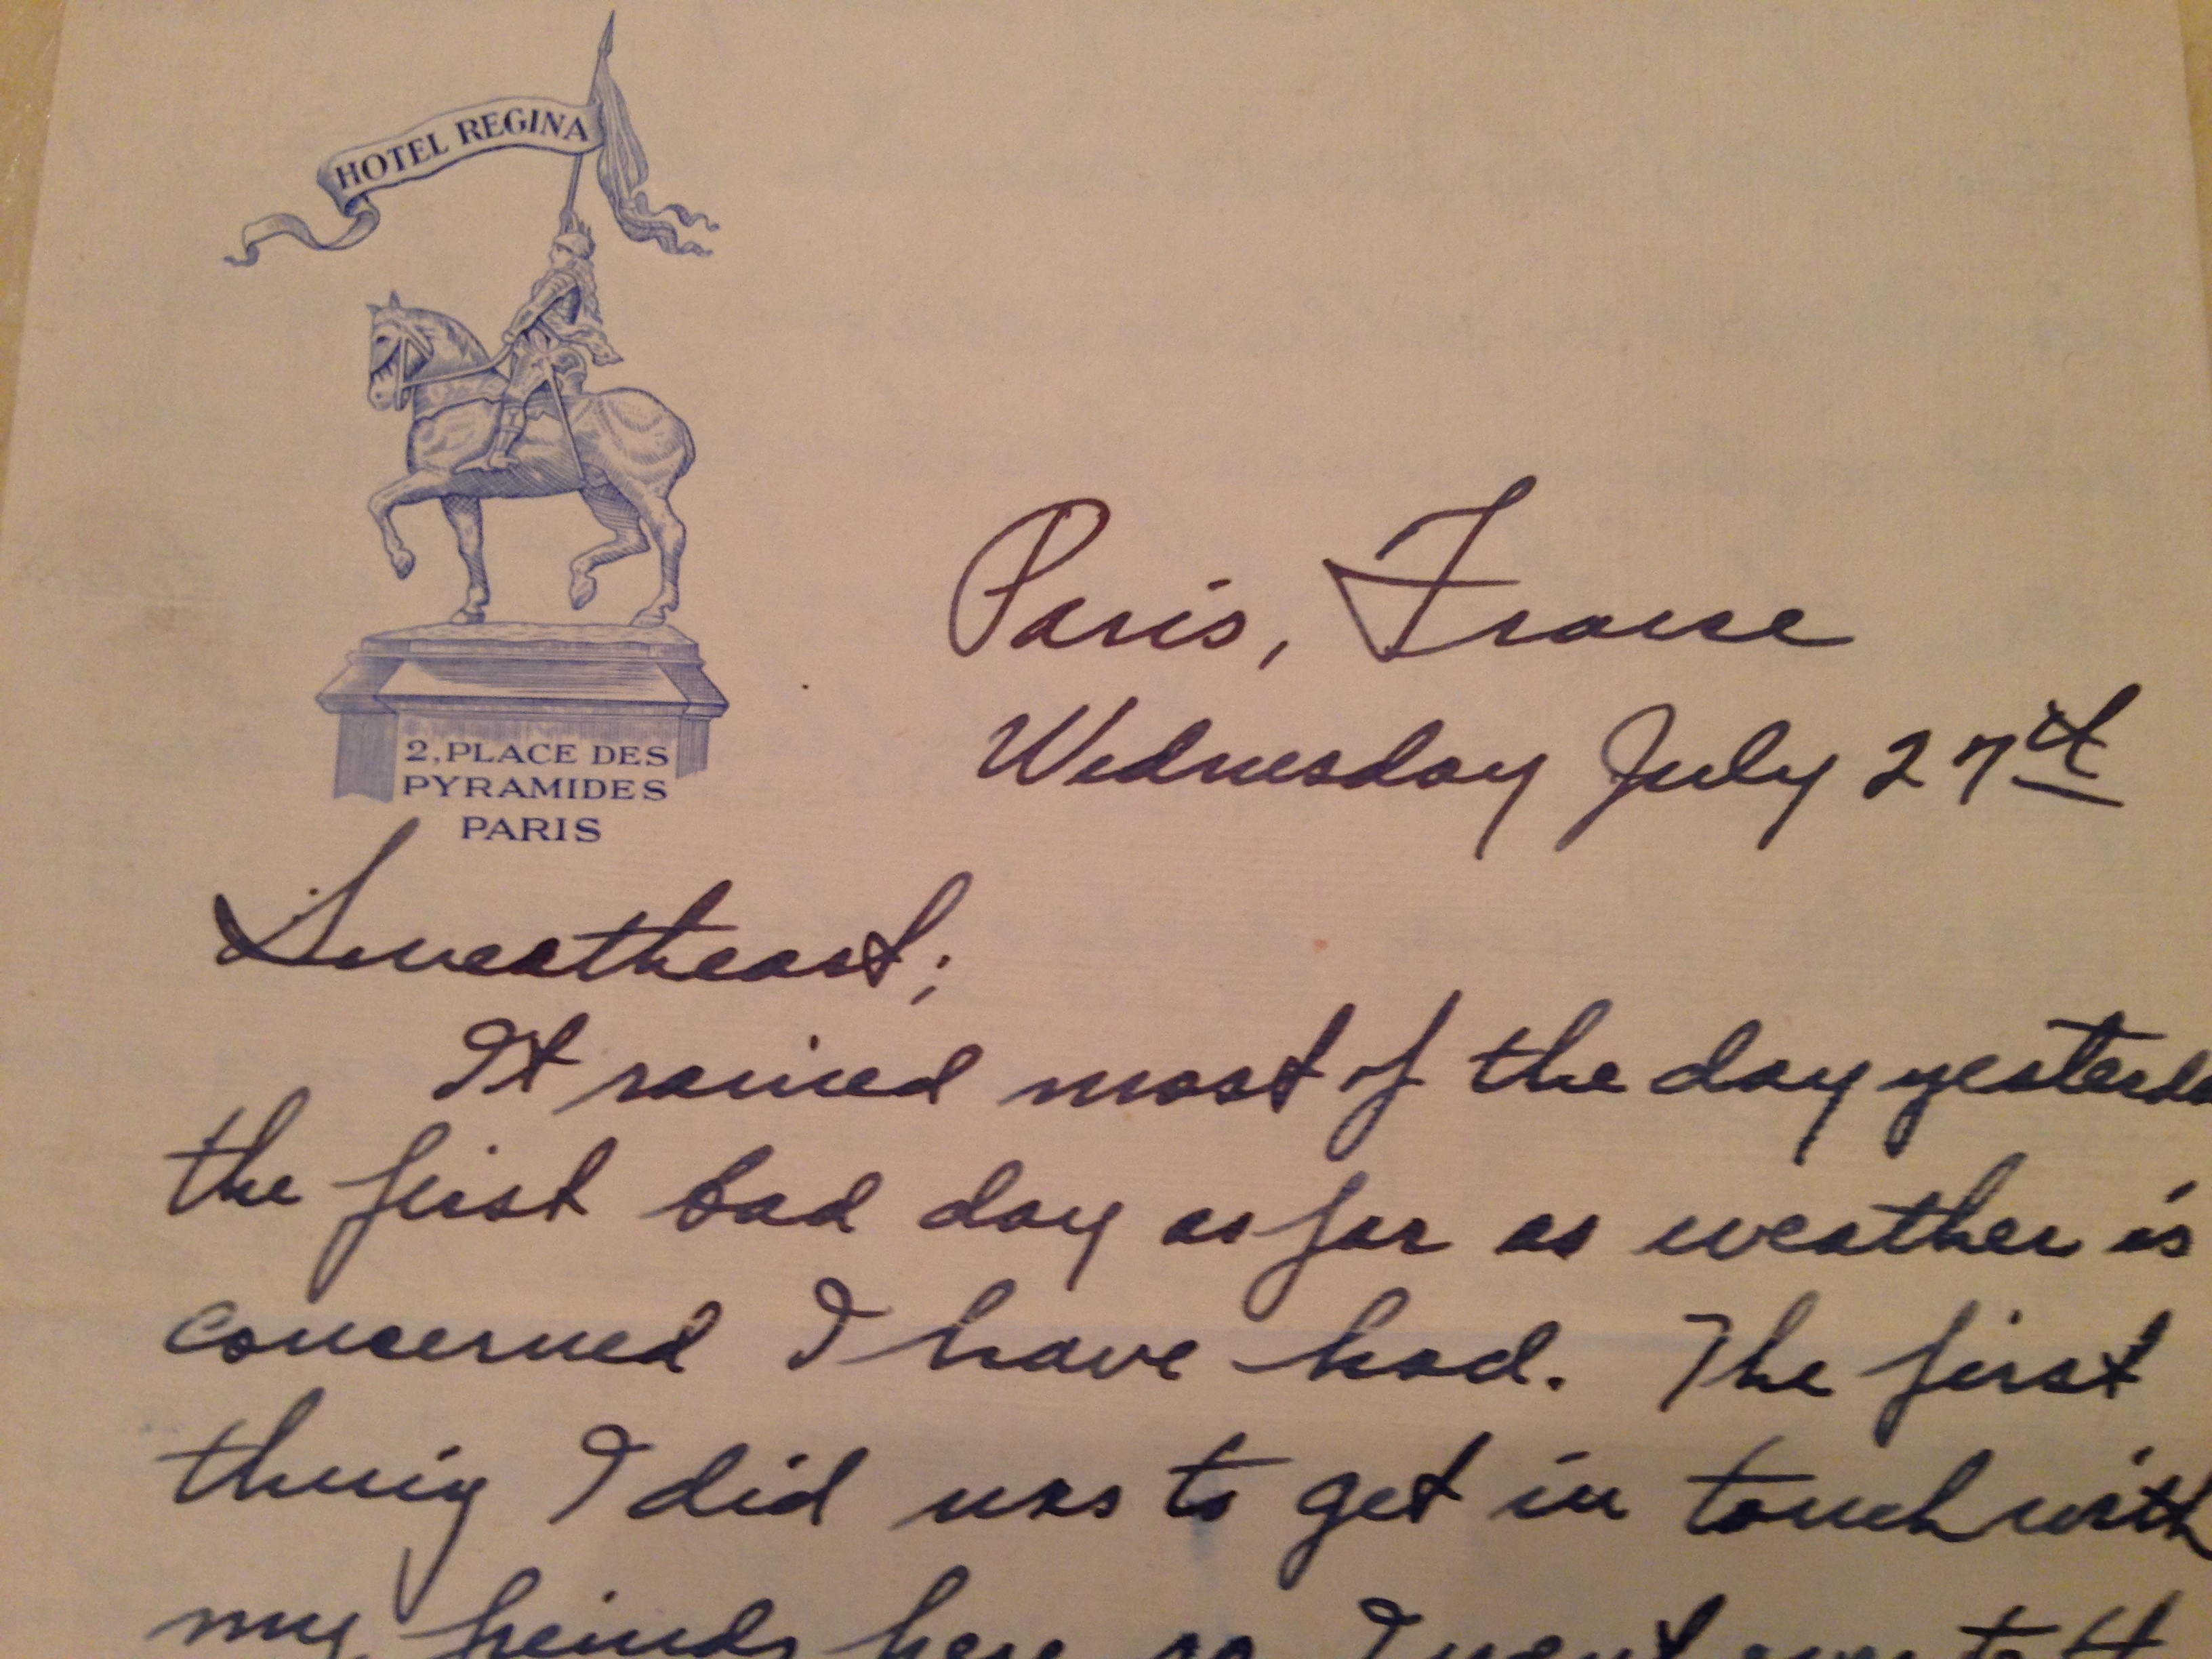 HOTEL REGINA
2, PLACE DES
PYRAMIDES
PARIS
Paris, France
Wednesday July 27th
Sweetheart;
It rained most of the day yesterda
the first bad day as far as weather is
concerned I have had. The first
thing I did was to get in touch with
my friends here so I went over to